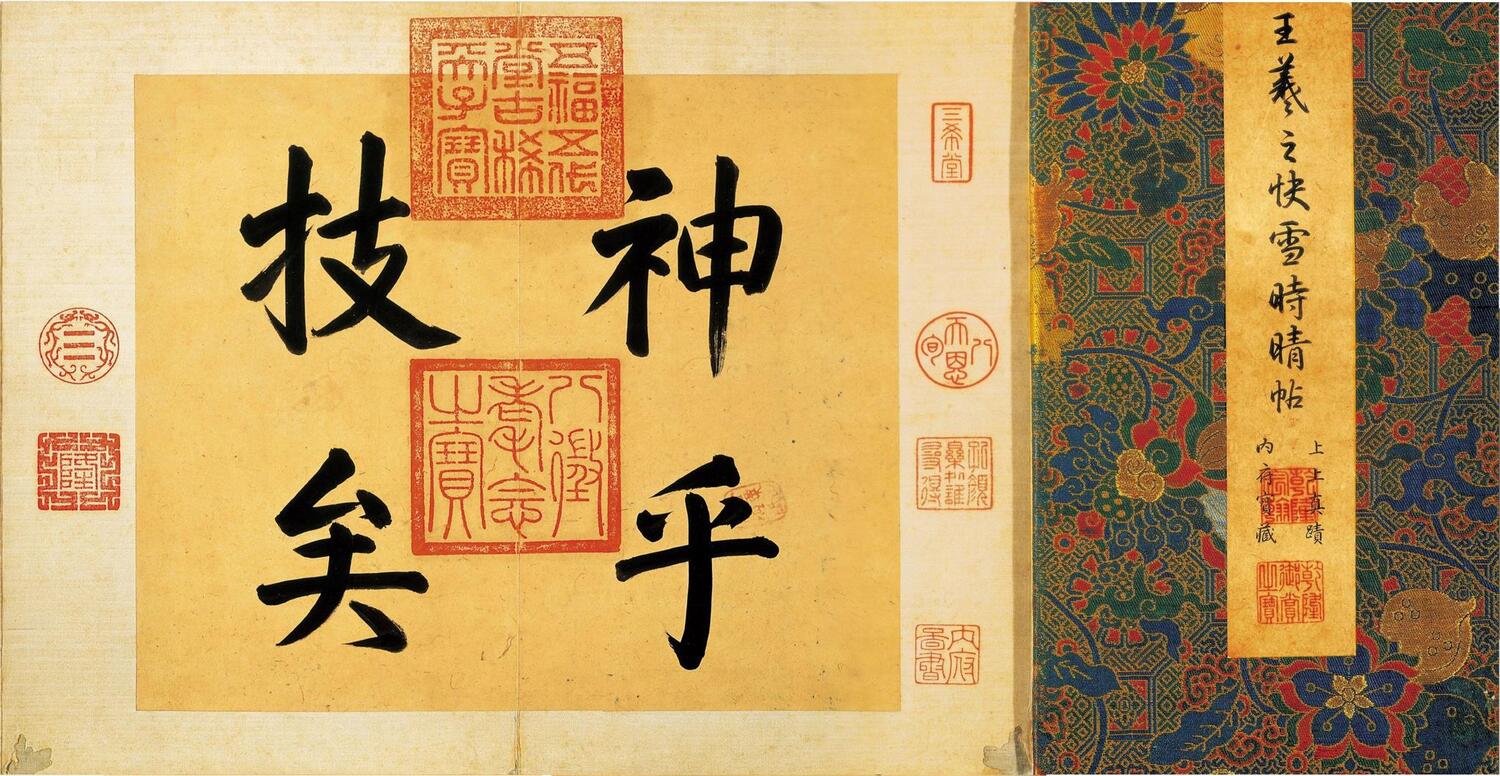 王羲之快雪時晴帖
上上真蹟
內府寶藏
乾隆
宸翰
乾隆
御賞
之寶
三希堂
八
天恩
旬
內府
圖書
神乎
技矣
五福五代
堂古稀
天子寶
八徵
耄念
之寶
三
乾
隆